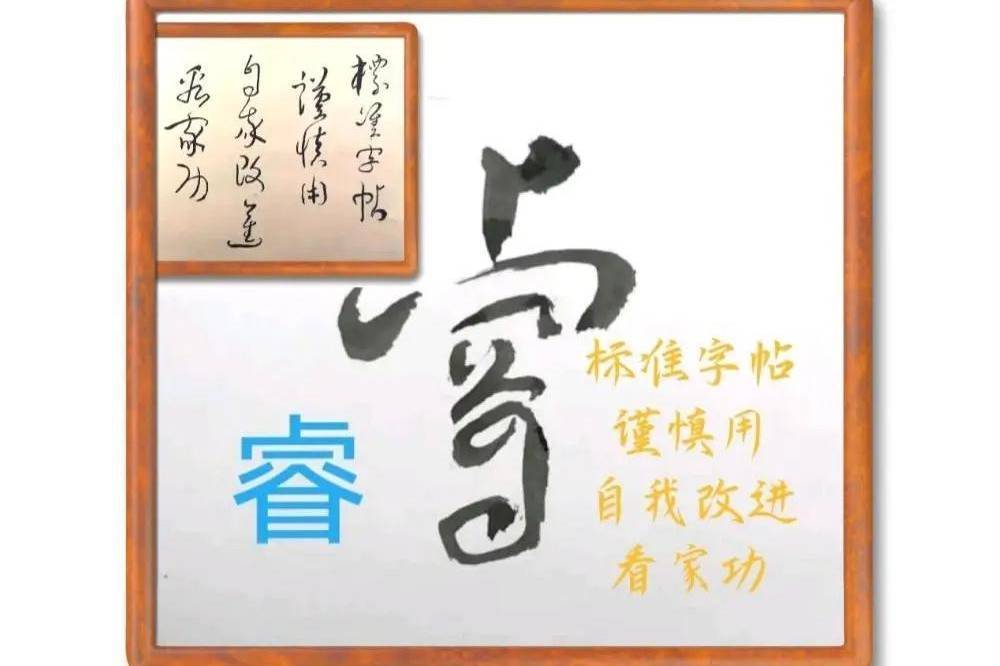 標準字帖
謹慎用
自我改進
看家功
睿
睿
标准字帖
谨慎用
自我改进
看家功